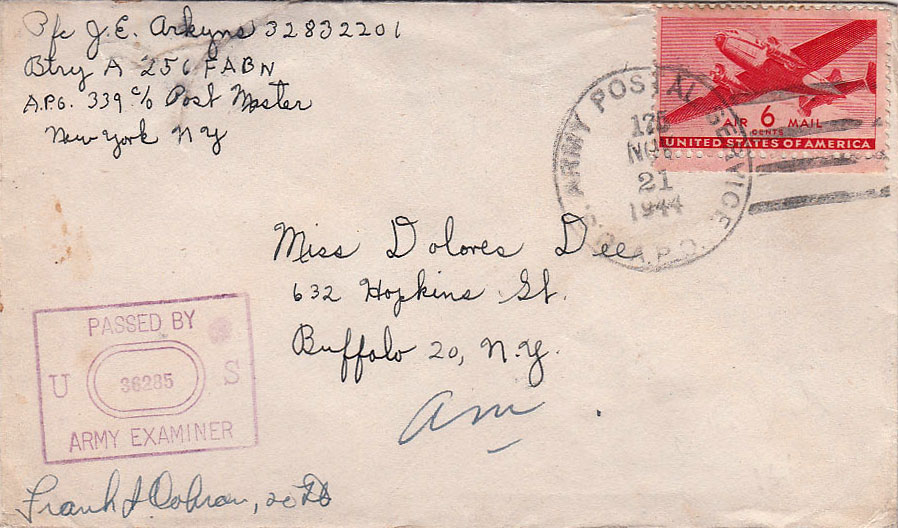 Pfc J.E. Arkyns 32832201
Btry A 256 FABN
A.P.O. 339 c/o Post Master
New York NY
AIR 6 MAIL
CENTS
UNITED STATES OF AMERICA
U.S. ARMY POSTAL SERVICE
NOV
21
1944
A.P.O.
Miss Dolores Dee
632 Hopkins St.
Buffalo 20, N.Y.
am
PASSED BY
U 36285 S
ARMY EXAMINER
Frank